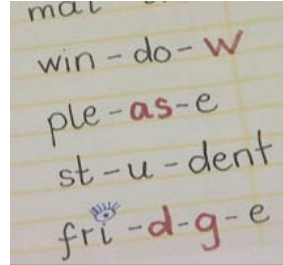 win - do - w
ple - as - e
st - u - dent
fri - d - g - e